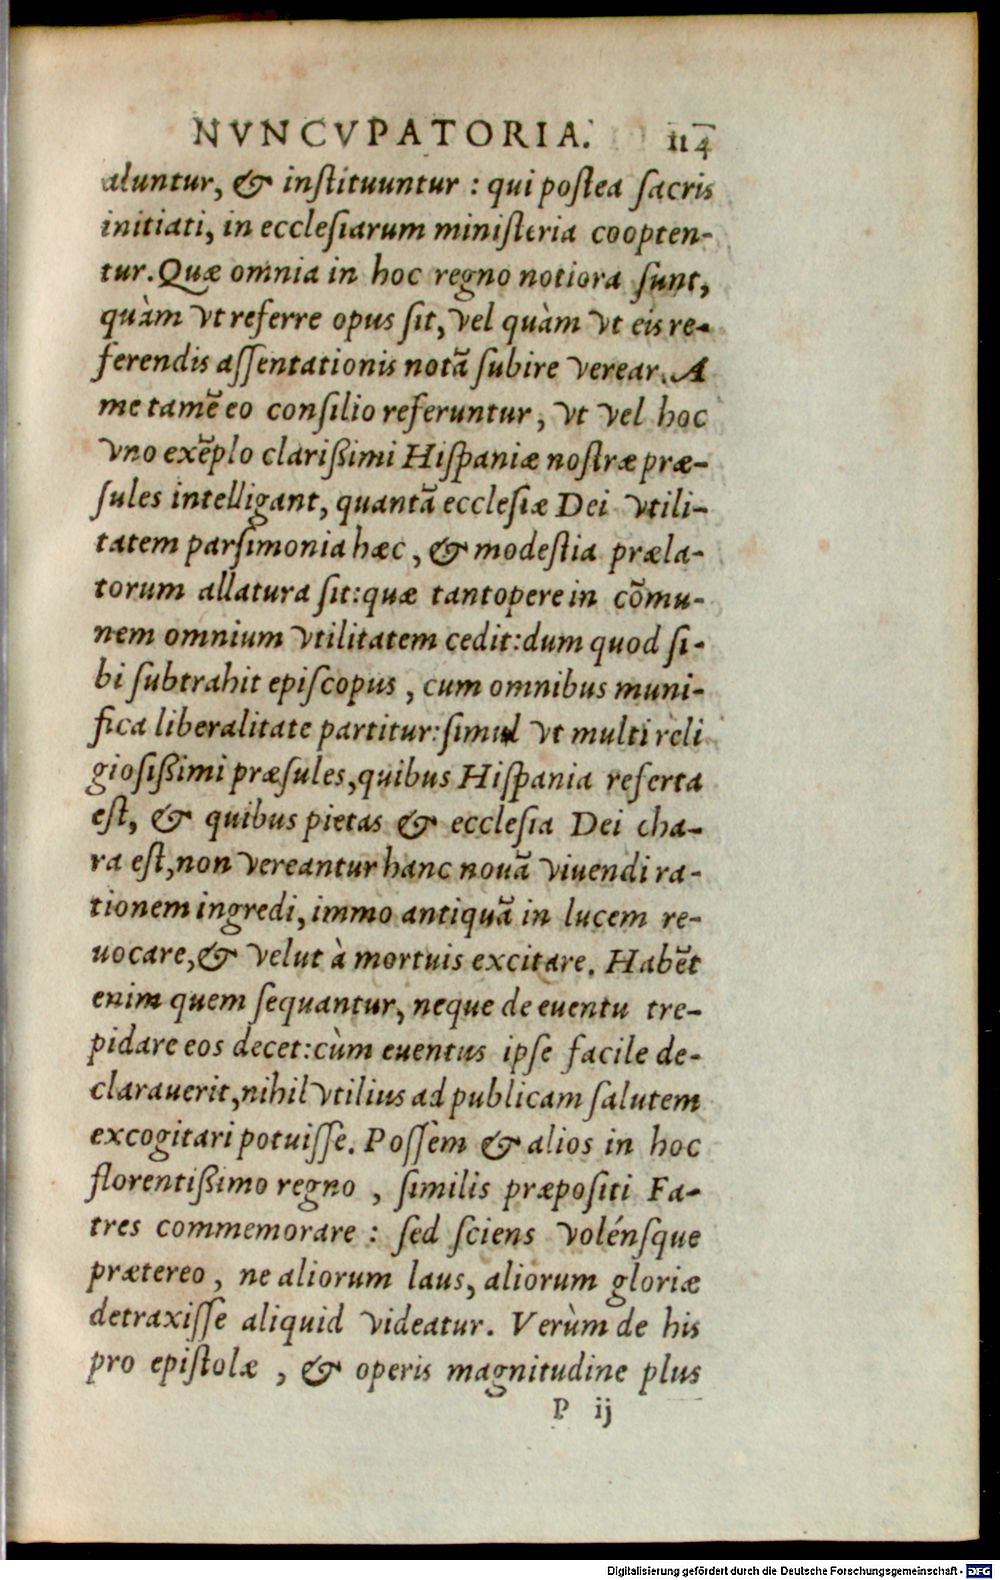 NVNCVPATORIA. 114
aluntur, & instituuntur : qui postea sacris
initiati, in ecclesiarum ministeria coopten-
tur. Quæ omnia in hoc regno notiora sunt,
quàm vt referre opus sit, vel quàm vt eis re-
ferendis assentationis notā subire verear. A
me tamē eo consilio referuntur, vt vel hoc
vno exēplo clarißimi Hispaniæ nostræ præ-
sules intelligant, quantā ecclesiæ Dei vtili-
tatem parsimonia hæc, & modestia præla-
torum allatura sit: quæ tantopere in cōmu-
nem omnium vtilitatem cedit: dum quod si-
bi subtrahit episcopus, cum omnibus muni-
fica liberalitate partitur: simul vt multi reli
giosißimi præsules, quibus Hispania referta
est, & quibus pietas & ecclesia Dei cha-
ra est, non vereantur hanc nouā viuendi ra-
tionem ingredi, immo antiquā in lucem re-
uocare, & velut à mortuis excitare. Habēt
enim quem sequantur, neque de euentu tre-
pidare eos decet: cùm euentus ipse facile de-
clarauerit, nihil vtilius ad publicam salutem
excogitari potuisse. Possem & alios in hoc
florentißimo regno, similis præpositi Fa-
tres commemorare : sed sciens volénsque
prætereo, ne aliorum laus, aliorum gloriæ
detraxisse aliquid videatur. Verùm de his
pro epistolæ, & operis magnitudine plus
P ij
Digitalisierung gefördert durch die Deutsche Forschungsgemeinschaft - DFG